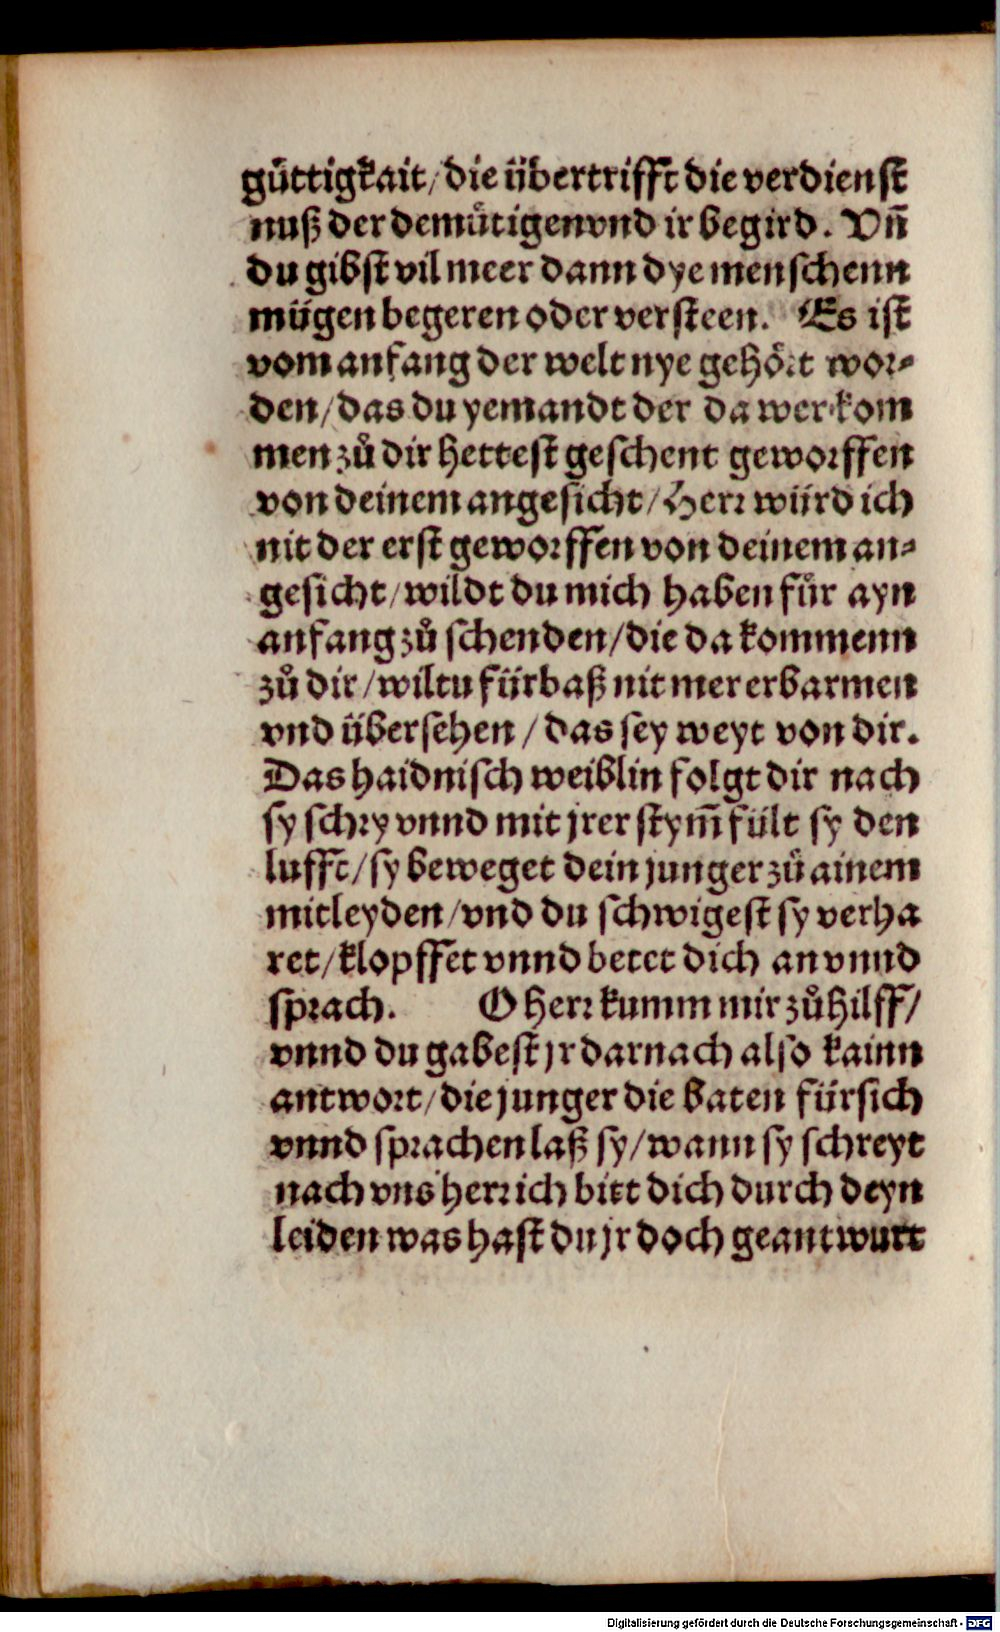 gůttigkait/ die übertrifft die verdienst
nuß der demůtigen vnd ir begird. Vn̄
du gibst vil meer dann dye menschenn
mügen begeren oder versteen. Es ist
vom anfang der welt nye gehört wor-
den/ das du yemandt der da wer kom
men zů dir hettest geschent geworffen
von deinem angesicht/ Herr würd ich
nit der erst geworffen von deinem an-
gesicht/ wildt du mich haben für ayn
anfang zů schenden/ die da kommenn
zů dir/ wiltu fürbaß nit mer erbarmen
vnd übersehen/ das sey weyt von dir.
Das haidnisch weiblin folgt dir nach
sy schry vnnd mit jrer stym̄ fült sy den
lufft/ sy beweget dein junger zů ainem
mitleyden/ vnd du schwigest sy verha
ret/ klopffet vnnd betet dich an vnnd
sprach. O herr kumm mir zů hilff/
vnnd du gabest jr darnach also kainn
antwort/ die junger die baten für sich
vnnd sprachen laß sy/ wann sy schreyt
nach vns herr ich bitt dich durch deyn
leiden was hast du jr doch geantwurt
Digitalisierung gefördert durch die Deutsche Forschungsgemeinschaft - DFG